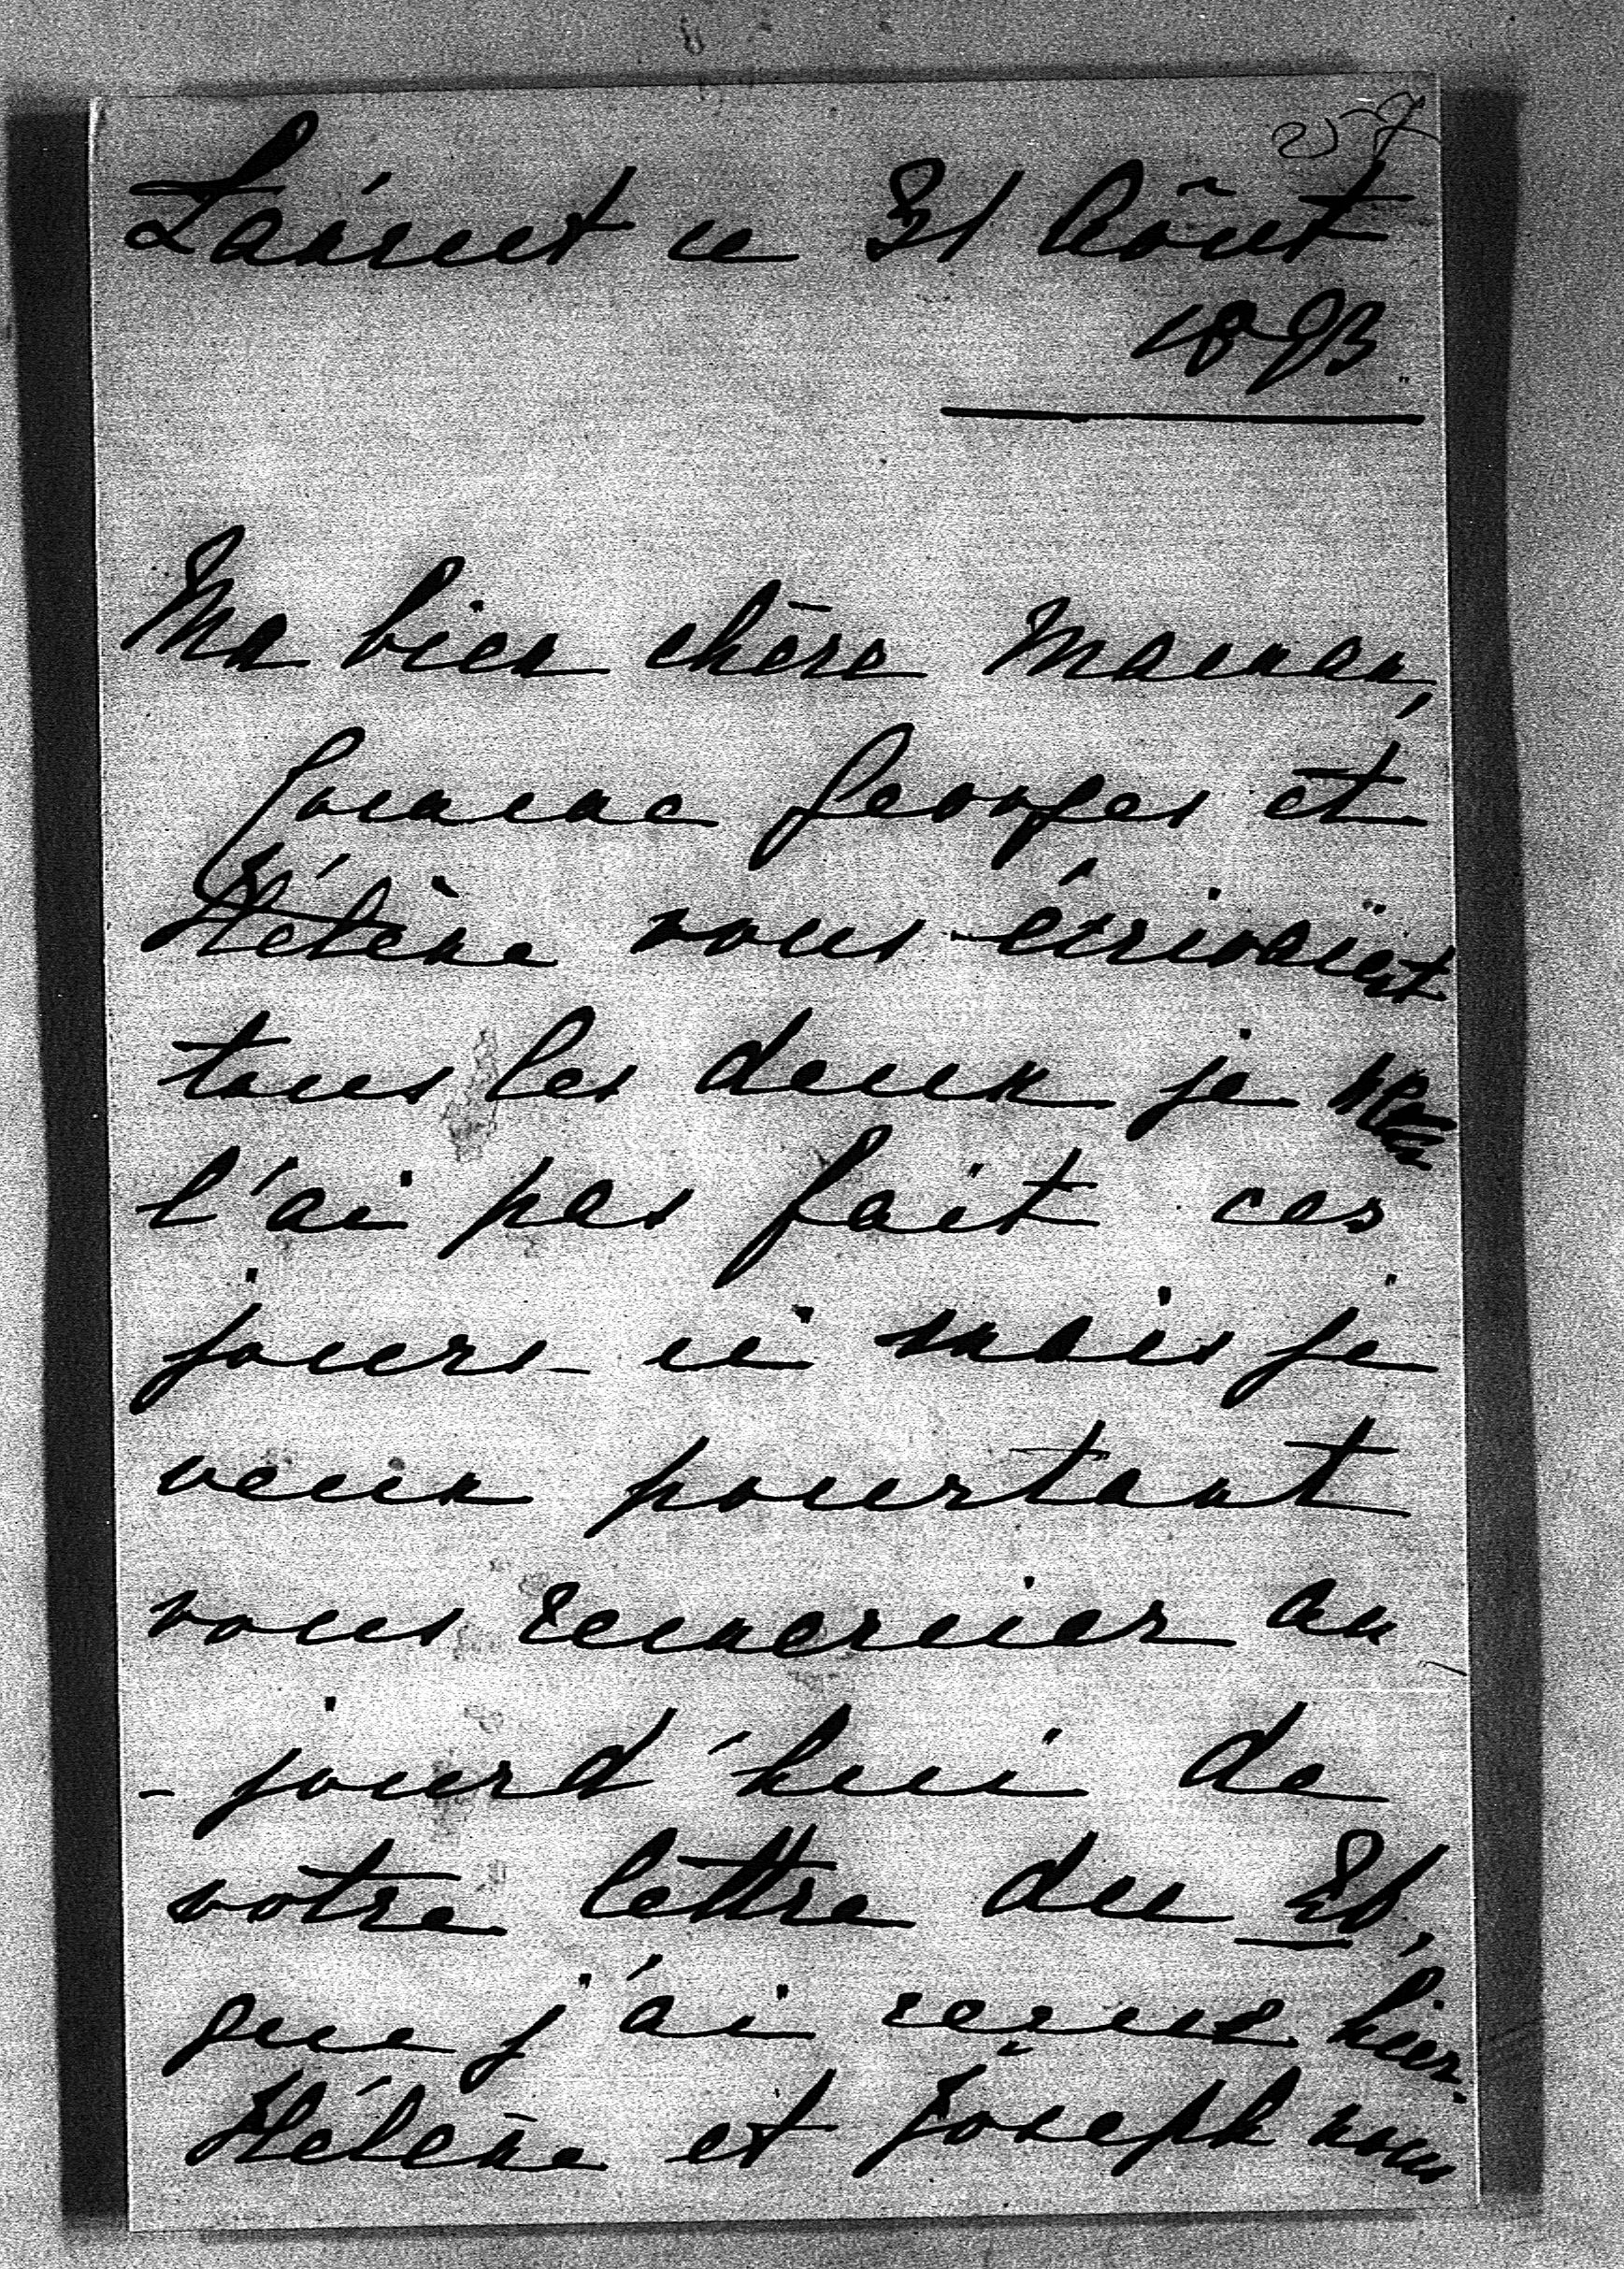 257
Laöruet ce 31 Août
1893.
Ma bien chère Maman,
Comme Georges et
Hélène vous écrivaient
tous les deux je ne
l'ai pas fait ces
jours-ci mais je
veux pourtant
vous remercier au
-jourd'hui de
votre lettre du
que j'ai reçue hier.
Hélène et Joseph nous